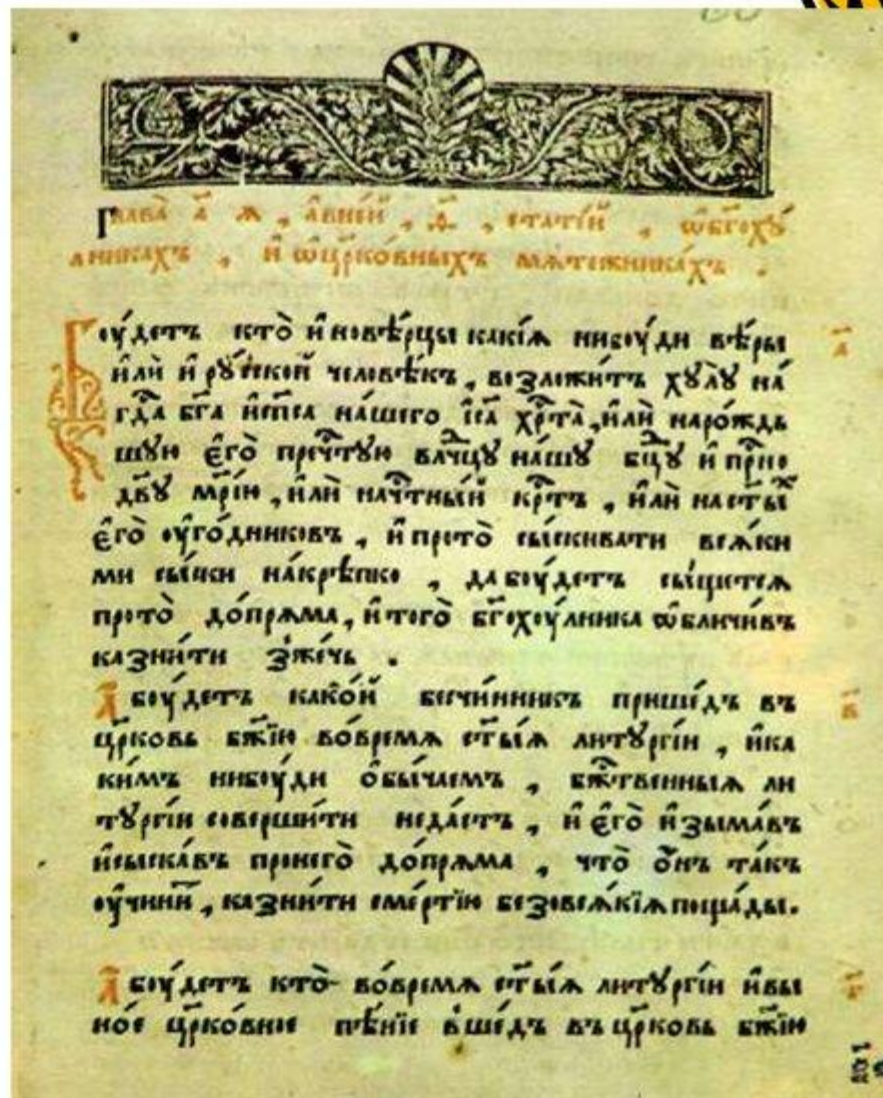 Глава̀ а҃ ѧ , а҆ в не́й , ѳ҃ , стате́й , ѡ҆ бг҃оху́
лникахъ , и҆ ѡ҆ цр҃ко́вныхъ мѧтежника́хъ .
Бꙋ́детъ кто̀ и҆новѣ́рцы какі́ѧ нибꙋ́ди вѣ́ры
и҆лѝ и҆ рꙋ́сской человѣ́къ , возложи́тъ хꙋлꙋ̀ на́
гдⷭ҇а бг҃а и҆ сп҃са на́шего і҆с҃а хрⷭ҇та̀ , и҆лѝ наро́ждь
шꙋю є҆го̀ пречⷭ҇тꙋю влⷣчцꙋ на́шꙋ бцⷣꙋ и҆ прⷭ҇но
дв҃ꙋ мр҃і́ю , и҆лѝ на чⷭ҇тны́й крⷭ҇тъ , и҆лѝ на ст҃ы́хъ
є҆го̀ ᲂу҆го́дниковъ , и҆ прото̀ сы́скивати всѧ́ки
ми сы́ски на́крѣпко , да бꙋ́детъ сы́щетсѧ
прото̀ до́прѧма , и҆ того̀ бг҃охꙋ́лника ѡ҆бличи́въ
казни́ти зже́чь .
а҆ бꙋ́детъ како́й безчи́нникъ прише́дъ въ
цр҃ковь бж҃їю во́времѧ ст҃ы́ѧ литꙋргі́и , и҆ ка
ки́мъ нибꙋ́ди ѻ҆бы́чаемъ , бжⷭ҇твенныѧ ли
тꙋргі́и соверши́ти неда́стъ , и҆ є҆го̀ и҆зыма́въ
и҆ сыска́въ пронего̀ до́прѧма , что̀ ѻ҆́нъ та́къ
ᲂу҆чини́тъ , казни́ти сме́ртїю безовсѧ́кїѧ поща́ды .
а҆ бꙋ́детъ кто̀ во́времѧ ст҃ы́ѧ литꙋргі́и и҆ в ы
но́е цр҃ко́вное пѣ́нїе вше́дъ въ цр҃ковь бж҃їю
а҃
в҃
г҃